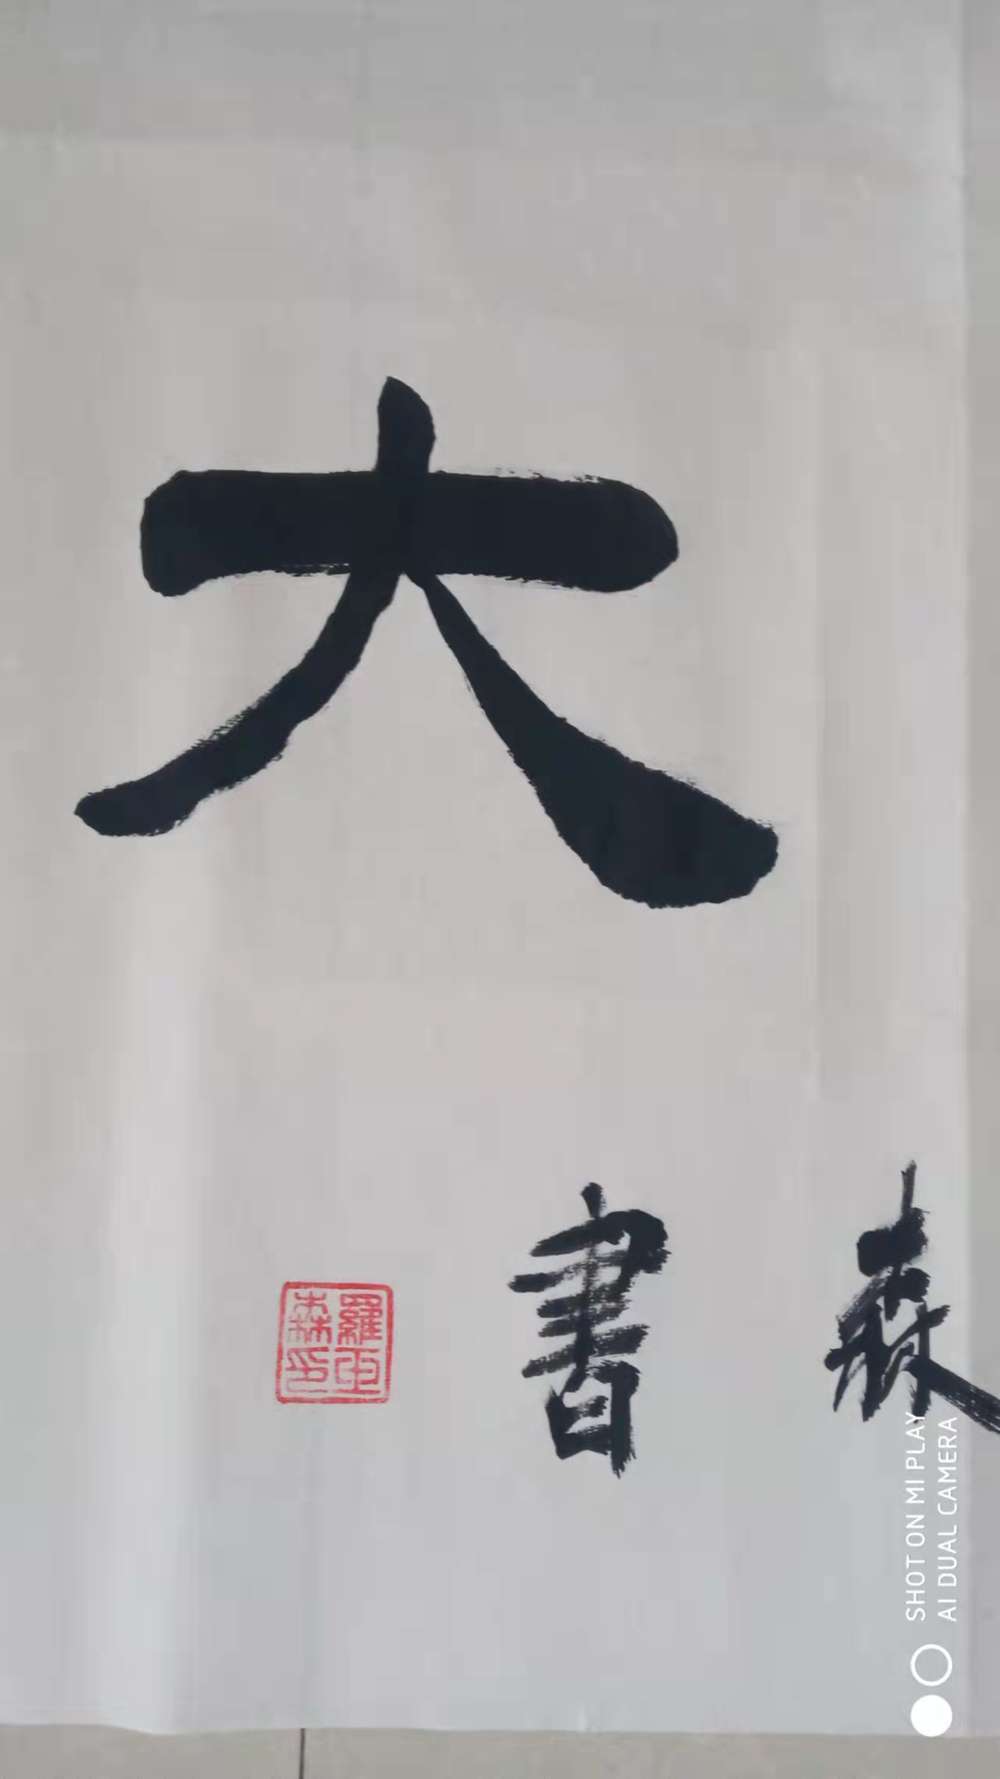 大
森書
羅正
森印
SHOT ON MI PLAY
AI DUAL CAMERA